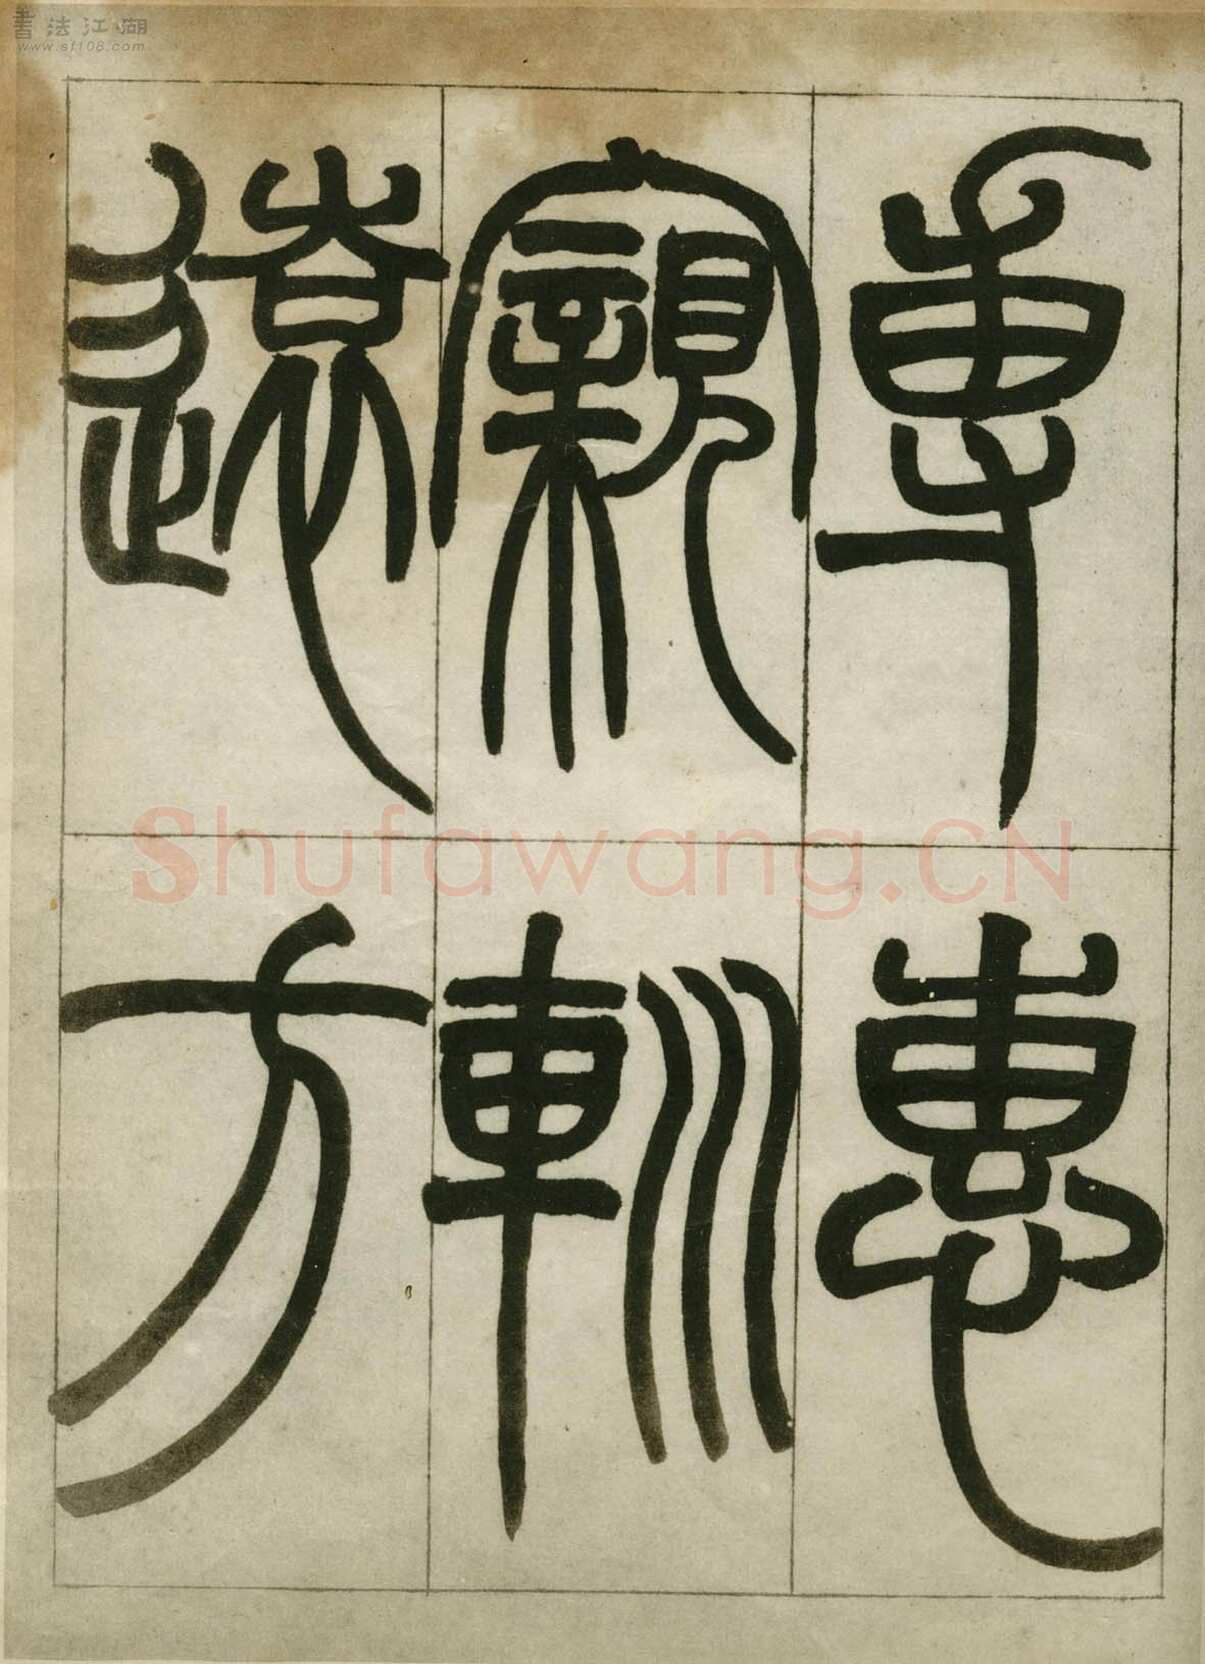 書法江湖
www.sf108.com
專惠
寴䡅
遠方
Shufawang.CN